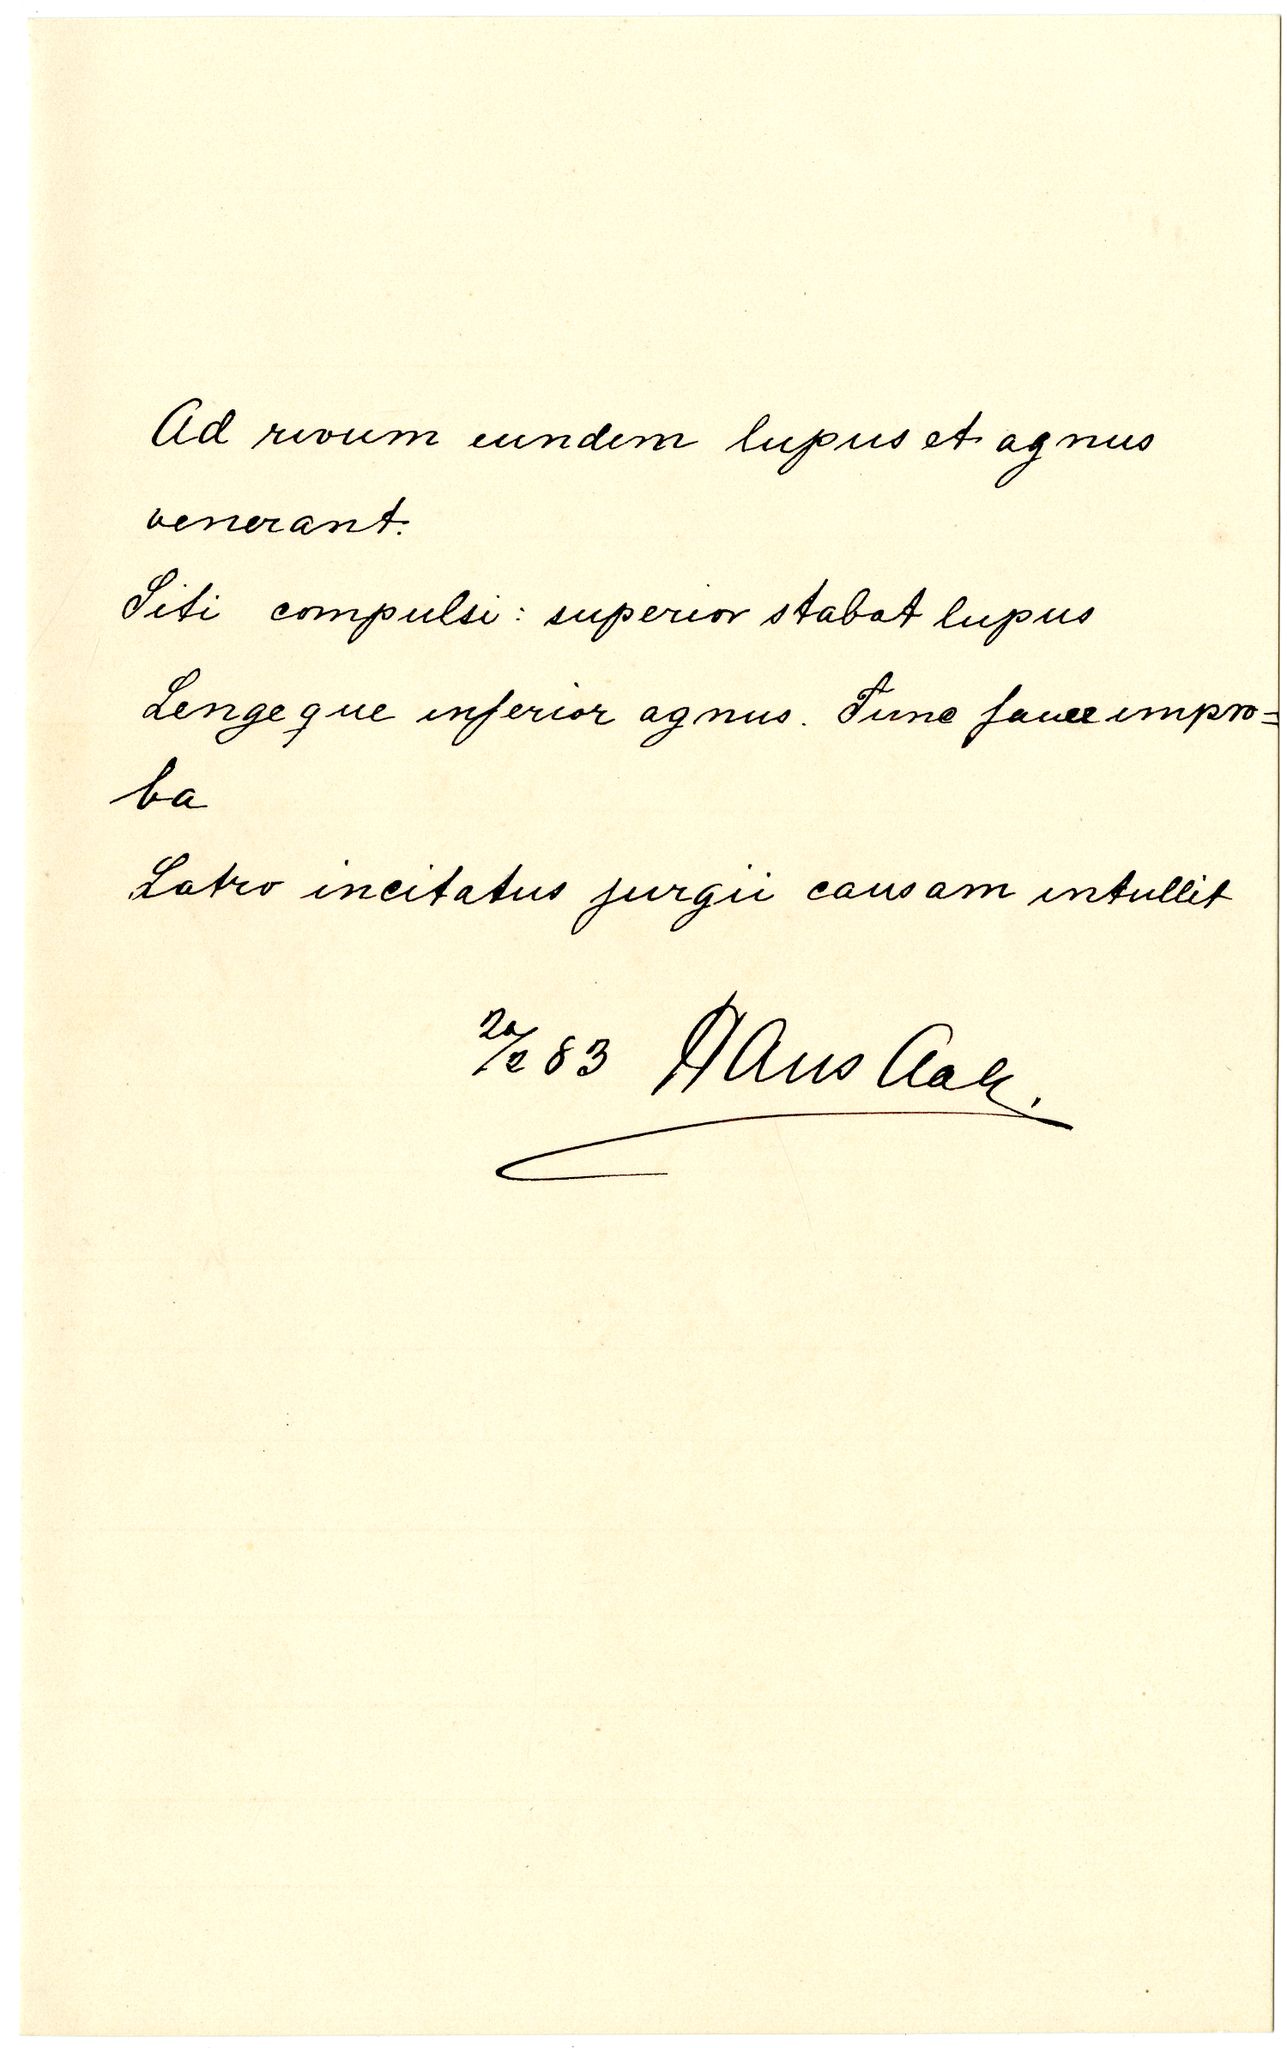 Ad rivum eundem lupus et agnus
venerant.
Siti compulsi: superior stabat lupus
Lengeque inferior agnus. Tunc fauce impro=
ba
Latro incitatus jurgii causam intullit
20/2 83 Hans Aall.